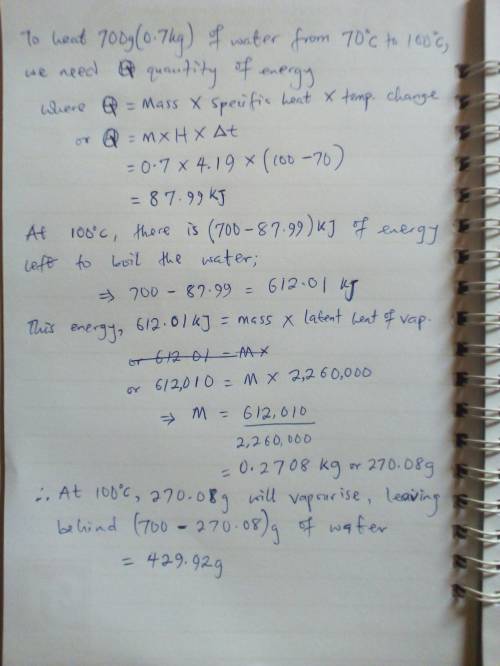 To heat 700g (0.7kg) of water from 70°C to 100°C,
we need Q quantity of energy
where Q = Mass X Specific heat X temp. change
or Q = M X H X Δt
= 0.7 X 4.19 X (100 - 70)
= 87.99 KJ
At 100°C, there is (700 - 87.99) KJ of energy
left to boil the water;
⇒ 700 - 87.99 = 612.01 KJ
This energy, 612.01 KJ = mass X latent heat of vap.
or 612 01 = M X
or 612,010 = M X 2,260,000
⇒ M = 612,010
2,260,000
= 0.2708 kg or 270.08g
∴ At 100°C, 270.08g will vapourise, leaving
behind (700 - 270.08)g of water
= 429.92g